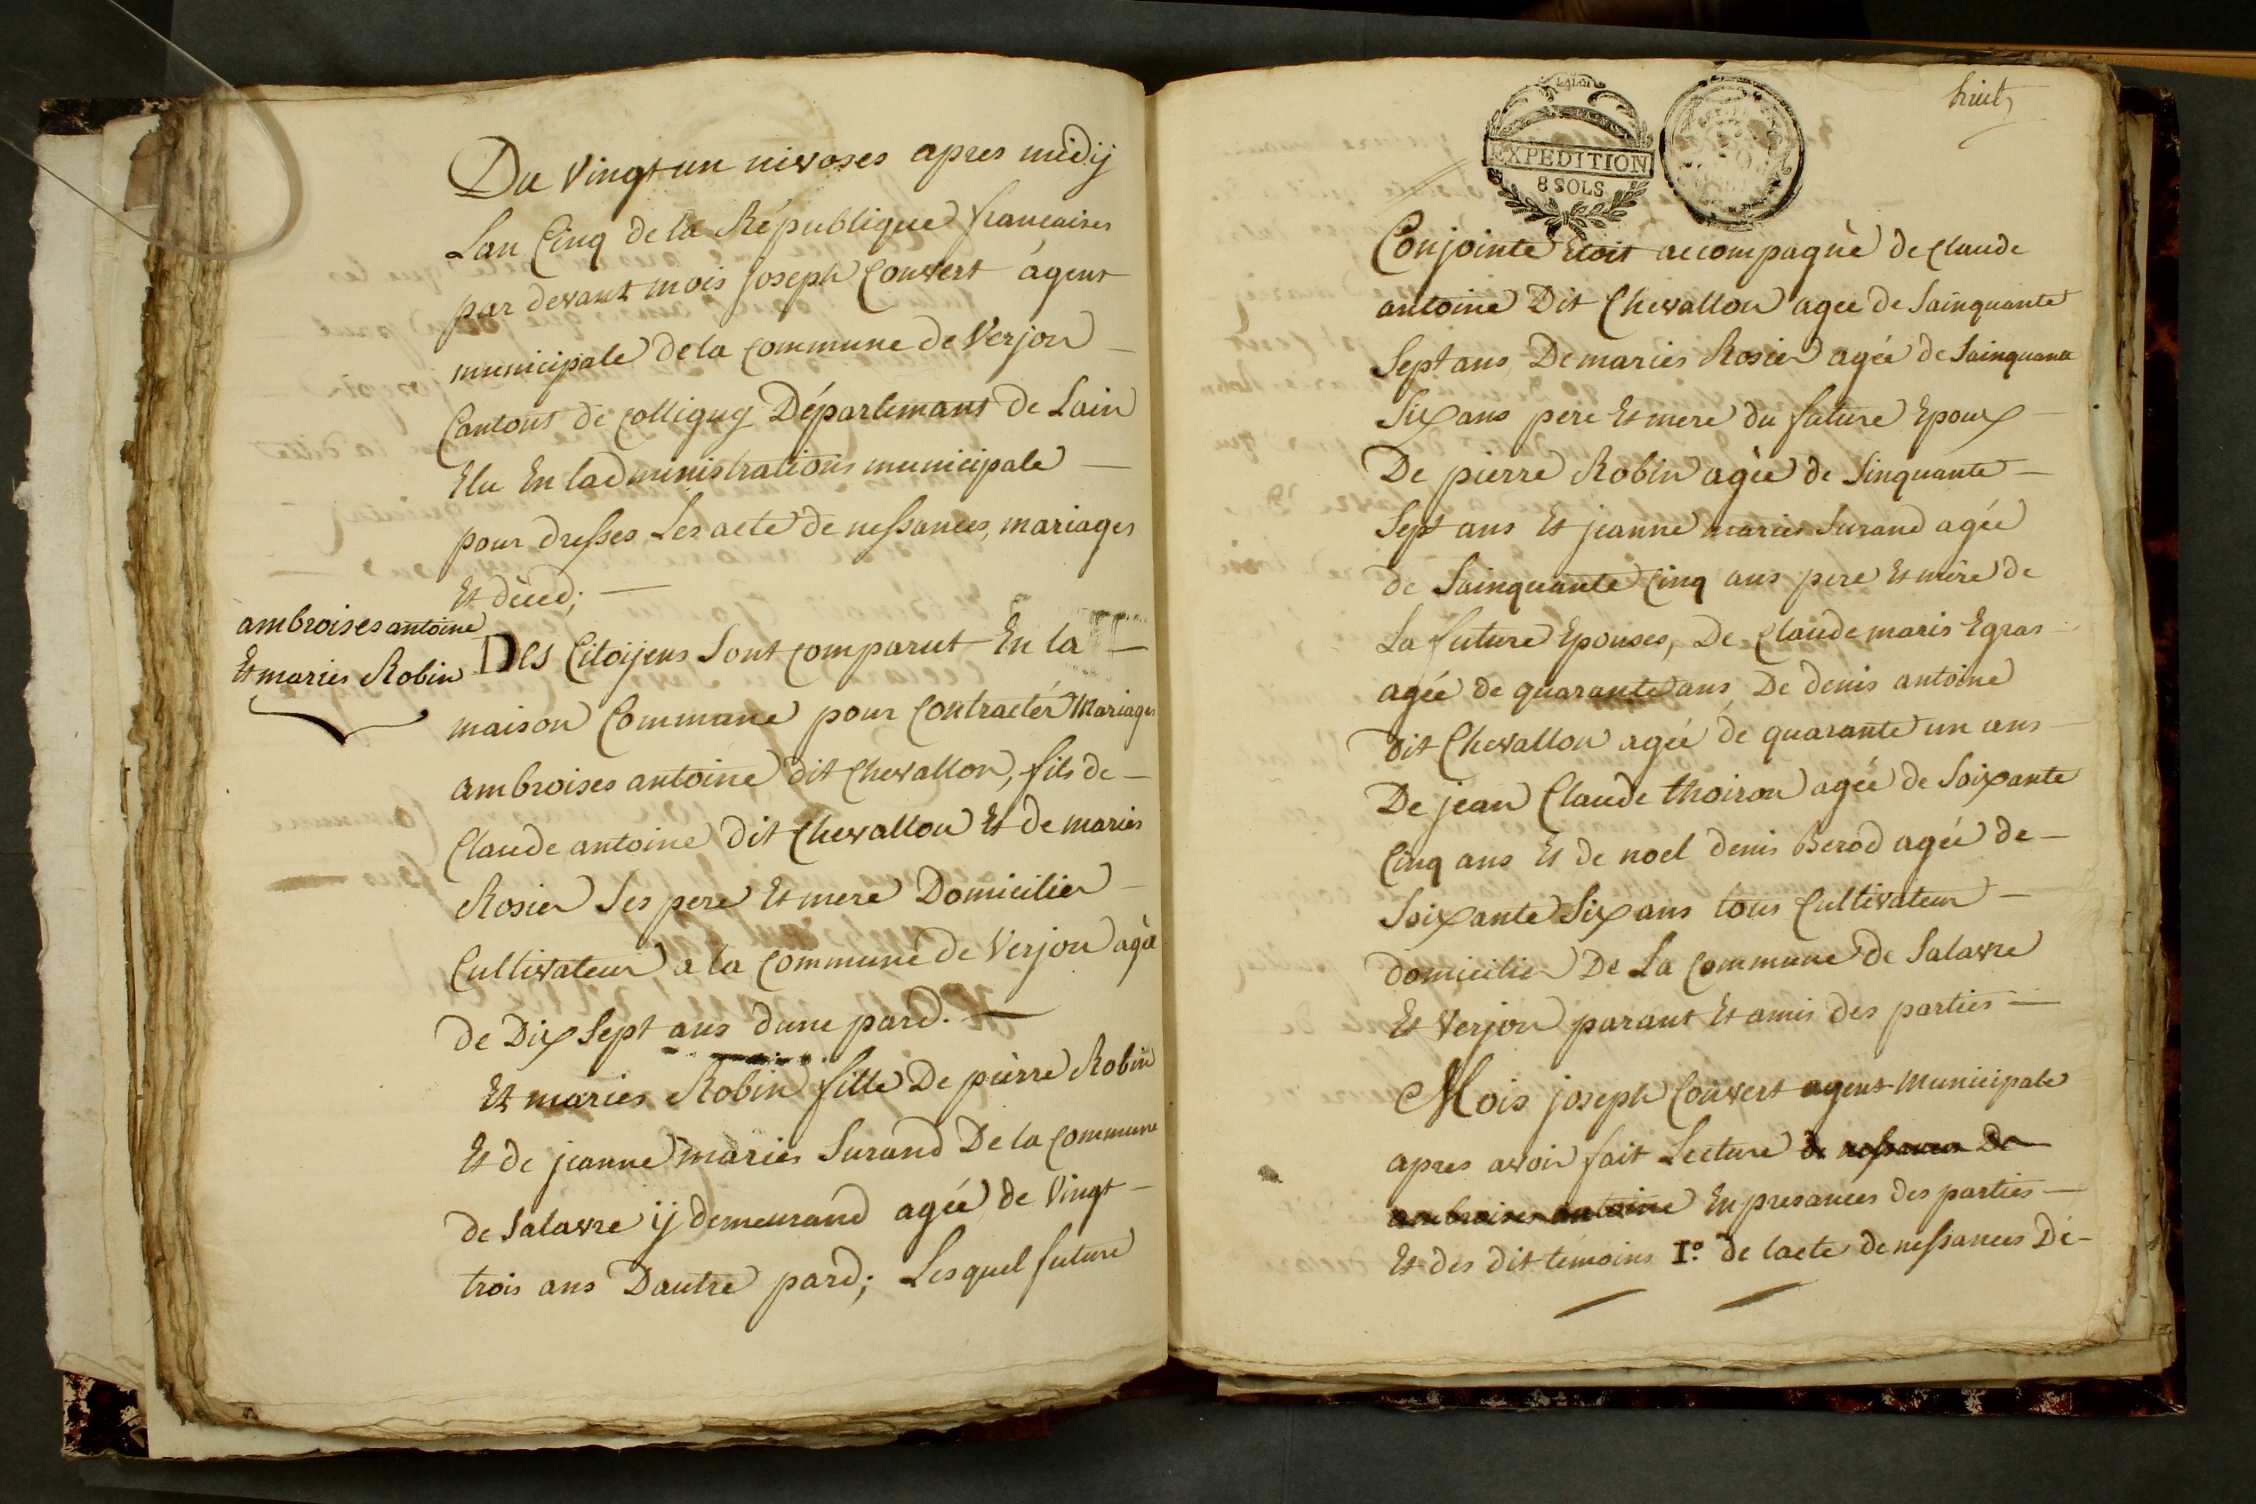 Du vingt un nivoses apres midij
Lan Cinq de la République francaises
par devant mois joseph Convert agent
municipale de la Commune de Verjon
Cantont de Colligny Départemant de Lain
Elu En ladministrations municipale
pour dresses Les acte de nessances, mariages
Et dèced;
ambroises antoine
Et maries Robin
Des Citoijens Sont comparut En la
maison Commune pour Contractér Mariages
ambroises antoine dit chevallon, fils de
Claude antoine dit Chevallon Et de maries
Rosier Ses pere Et mere Domicilier
Cultivateur a la commune de Verjon agée
de Dix Sept ans dune pard.
Et maries Robin fille De pièrre Robin
Et de jeanne maries Surand De la commune
de Salavre ij demeurand agée de Vingt
trois ans Dautre pard; Lesquel future
huit
LA LOI
EXPEDITION
8 SOLS
Conjointe Etoit accompagnè de Claude
antoine Dit Chevallon agée de Sainquante
Sept ans, De maries Rosier agée de Sainquante
Six ans pere Et mere du future Epoux
De pierre Robin agée de Sinquante
Sept ans Et jeanne maries Surand agée
de Sainquante Cinq ans pere Et mère de
La future Epouses, De Claude maris Egras
agée de quarante ans, De denis antoine
dit Chevallon agée de quarante un ans
De jean Claude thoiron agée de Soixante
Cinq ans Et de noel denis Berod agée de
Soixante Six ans tous Cultivateur
domicilier De La Commune de Salavre
Et Verjon parant Et amis des parties
Mois joseph Convert agent Municipale
apres avoir fait Lecture de nessances De
ambroises antoine En presances des parties
Et des dit témoins 1º. de lacte de nessances De